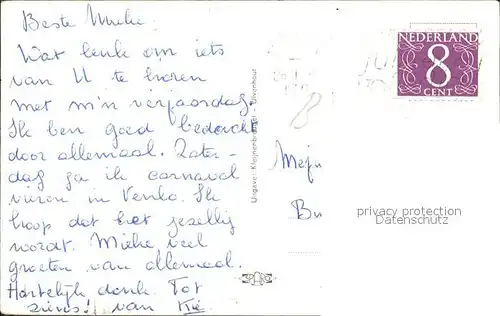 Beste Mieke.
Wat leuk om iets
van U te horen
met m'n verjaardag.
Ik ben goed bedacht
door allemaal. Zater-
dag ga ik carnaval
vieren in Venlo. Ik
hoop dat het gezellig
wordt. Mieke veel
groeten van allemaal.
Hartelijk dank. Tot
ziens! van
Uitgave: Kleijnenbroek - Ulvenhout
NEDERLAND
8
CENT
8
Mej
Bu
privacy protection
Datenschutz